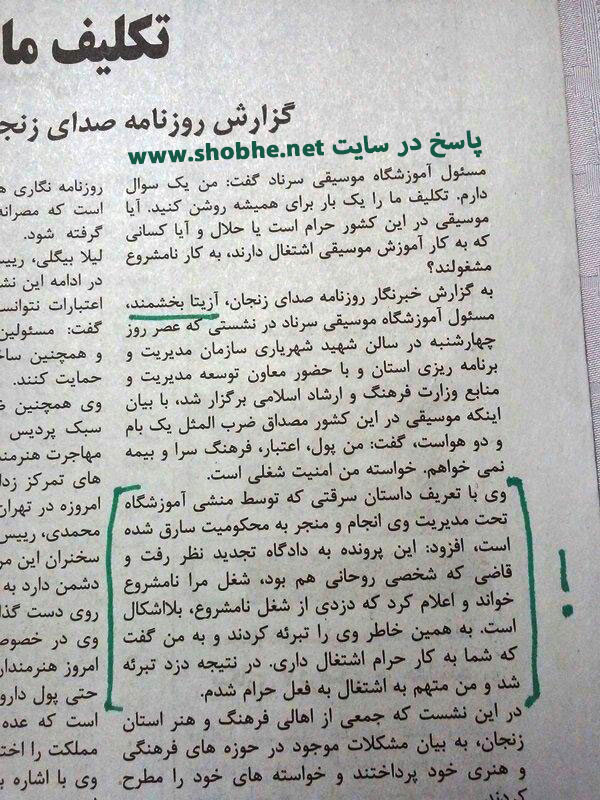 تکلیف ما
گزارش روزنامه صدای زنجا
پاسخ در سایت www.shobhe.net
مسئول آموزشگاه موسیقی سرناد گفت: من یک سوال
دارم. تکلیف ما را یک بار برای همیشه روشن کنید. آیا
موسیقی در این کشور حرام است یا حلال و آیا کسانی
که به کار آموزش موسیقی اشتغال دارند، به کار نامشروع
مشغولند؟
به گزارش خبرنگار روزنامه صدای زنجان، آزیتا بخشمند،
مسئول آموزشگاه موسیقی سرناد در نشستی که عصر روز
چهارشنبه در سالن شهید شهریاری سازمان مدیریت و
برنامه ریزی استان و با حضور معاون توسعه مدیریت و
منابع وزارت فرهنگ و ارشاد اسلامی برگزار شد، با بیان
اینکه موسیقی در این کشور مصداق ضرب المثل یک بام
و دو هواست، گفت: من پول، اعتبار، فرهنگ سرا و بیمه
نمی خواهم. خواسته من امنیت شغلی است.
وی با تعریف داستان سرقتی که توسط منشی آموزشگاه
تحت مدیریت وی انجام و منجر به محکومیت سارق شده
است، افزود: این پرونده به دادگاه تجدید نظر رفت و
قاضی که شخصی روحانی هم بود، شغل مرا نامشروع
خواند و اعلام کرد که دزدی از شغل نامشروع، بلااشکال
است. به همین خاطر وی را تبرئه کردند و به من گفت
که شما به کار حرام اشتغال داری. در نتیجه دزد تبرئه
شد و من متهم به اشتغال به فعل حرام شدم.
در این نشست که جمعی از اهالی فرهنگ و هنر استان
زنجان، به بیان مشکلات موجود در حوزه های فرهنگی
و هنری خود پرداختند و خواسته های خود را مطرح
کردند.
روزنامه نگاری ه
است که مصرانه
گرفته شود.
لیلا بیگلی، رییس
در ادامه این نش
اعتبارات نتوانست
گفت: مسئولین
و همچنین ساخ
حمایت کنند.
وی همچنین
سبک پردیس
مهاجرت هنرمند
های تمرکز زدا
امروزه در تهران
محمدی، رییس
سخنران این مر
دشمن دارد به
روی دست گذا
وی در خصوص
امروز هنرمندار
حتی پول دارو
است که عده
مملکت را اخت
وی با اشاره ب